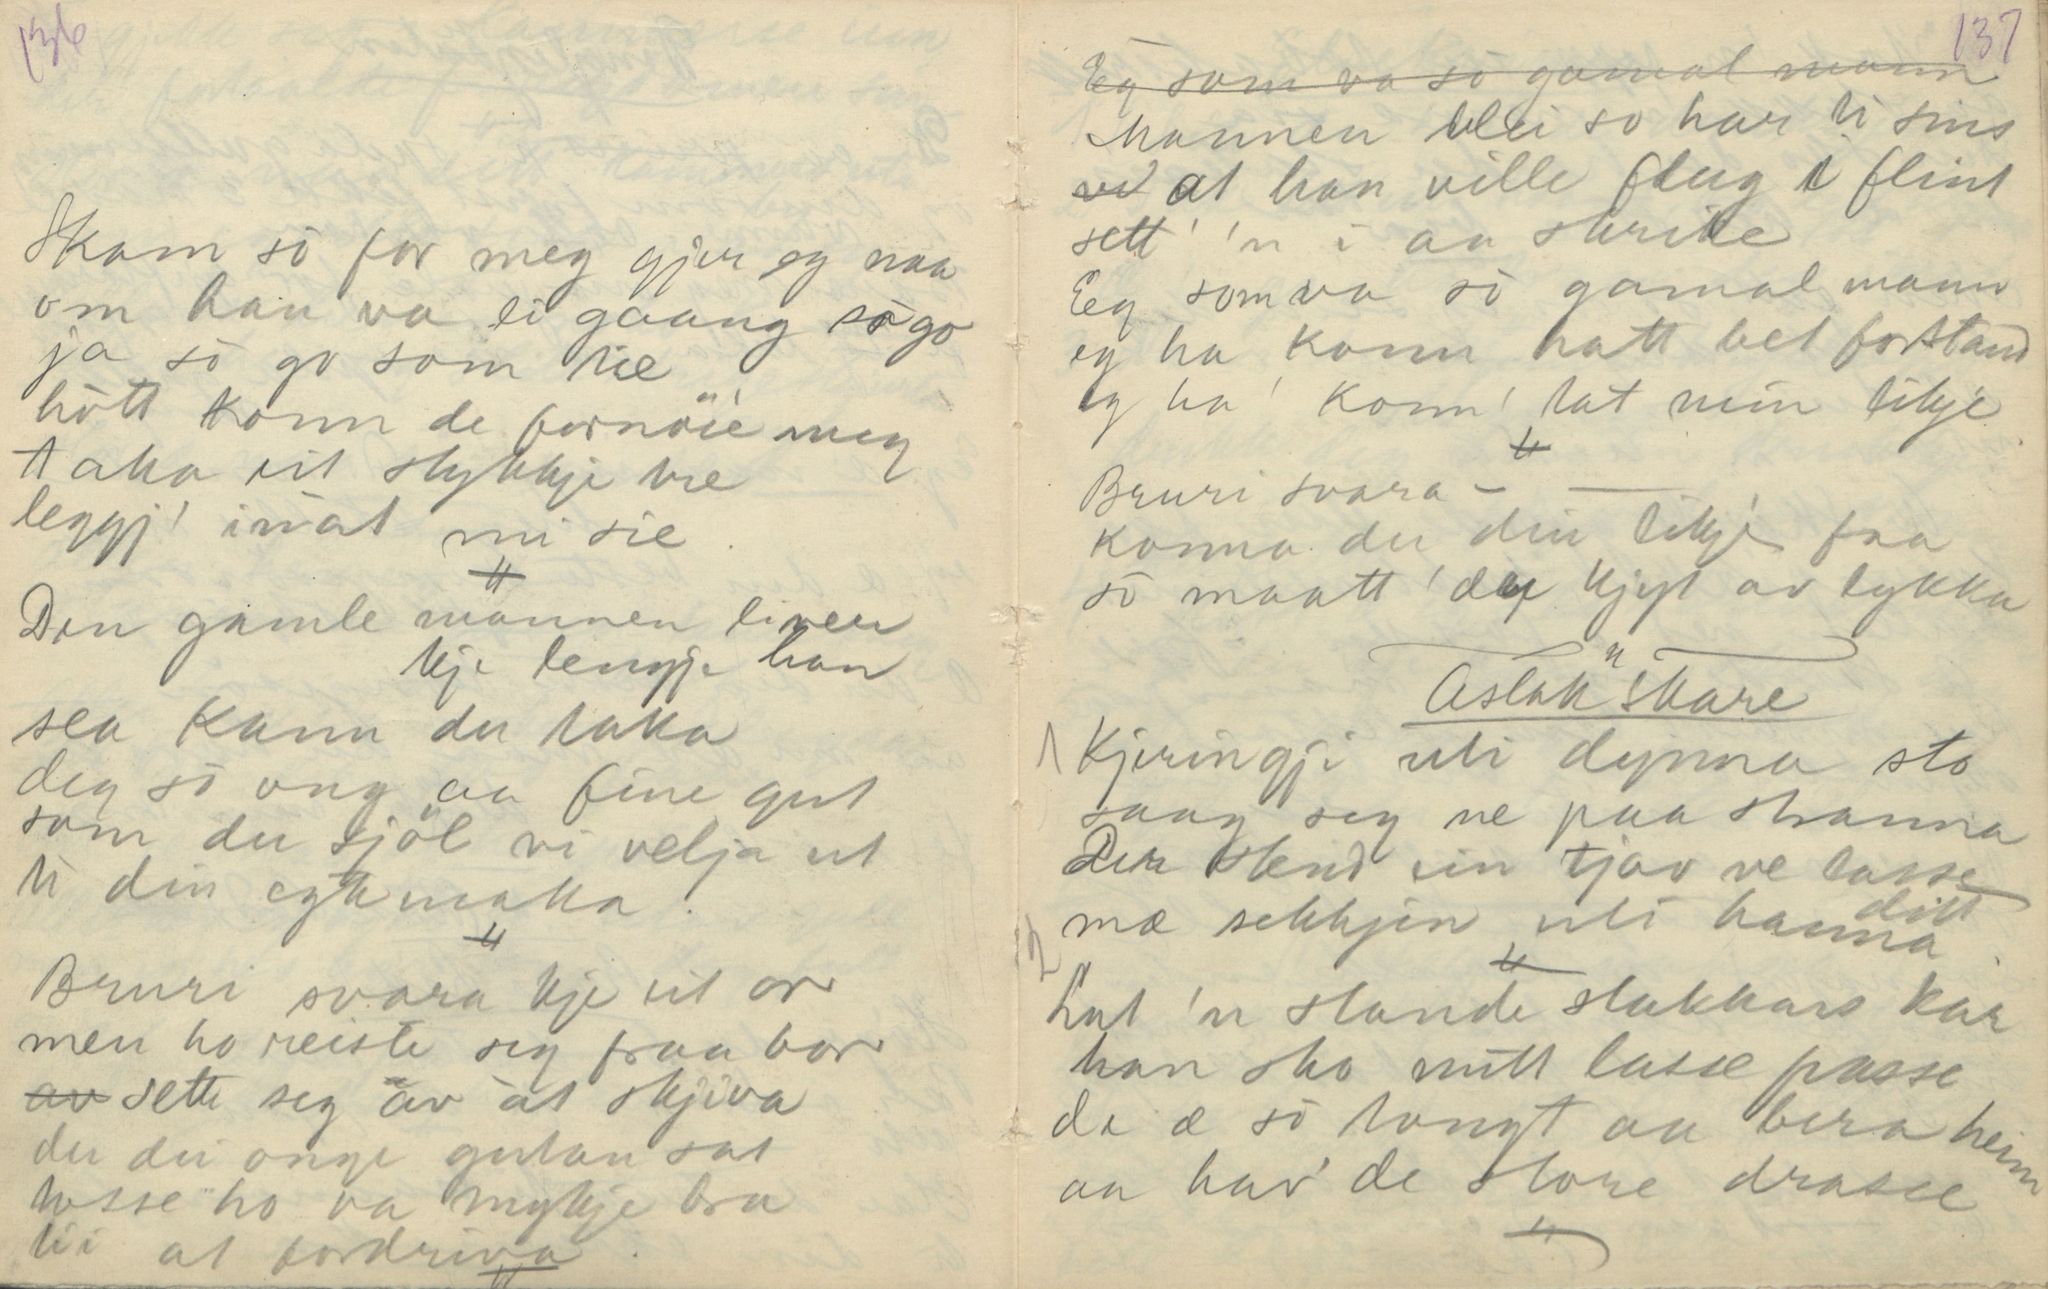 136
Skam sò for meg gjer eg naa
om han va ei gaang so go
ja sò go som tie
hòtt konn de fornöie meg
taka eit stykkje tre
leggj' innat mi sie.
Den gamle mannen liver
kje lengje han
sea kann du taka
deg sò ong aa fine gut
som du sjöl vi velja ut
ti din egtemaka.
Bruri svara kje eit or
men ho reiste seg fraa bor
av sette seg av at skjiva
der dei onge gutan sat
tosse ho va mykje bra
ti at fordriva.
137
Eg som va sò gamal mann
Mannen blei so har ti sins
ve at han ville flug i flint
sett' 'n i aa skrike
Eg som va sò gamal mann
eg ha konn hatt bet forstand
eg ha' konn' tat min likje
Bruri svara -
konna du din likje faa
sò maatt' du kjyt av lykka
Aslak Skare
1 Kjeringji uti dynna sto
saag seg ne paa stranna
Der stend ein tjov ve lasse
ditt
mæ sekkjen uti hanna.
2 Lat 'n stande stakkars kar
han sko mitt lasse passe
de æ sò tongt aa bera heim
aa hav' de store drasse